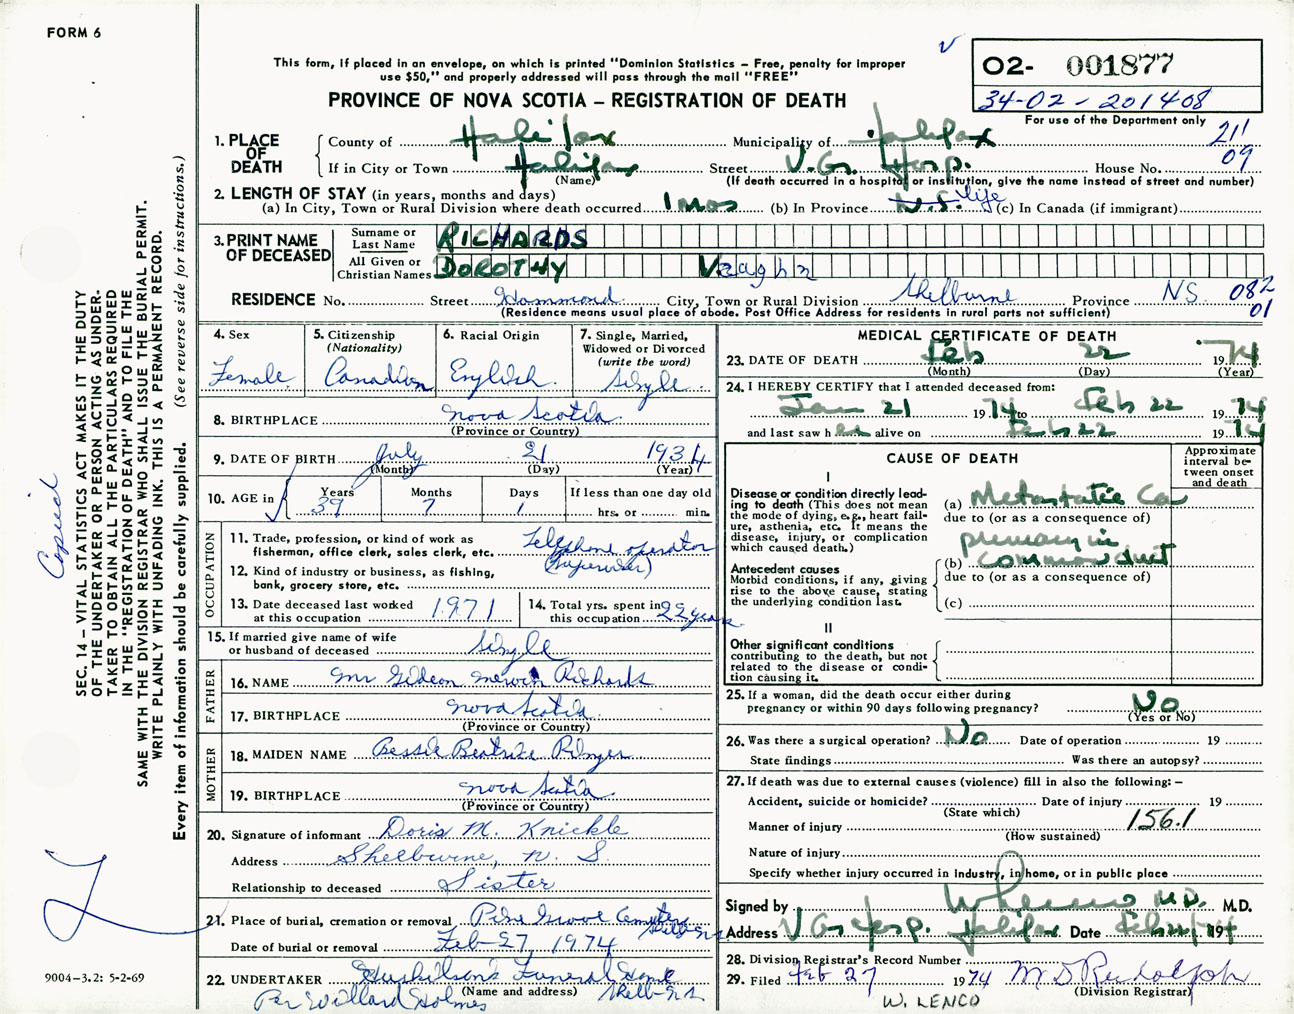 FORM 6
This form, if placed in an envelope, on which is printed "Dominion Statistics – Free, penalty for improper
use $50," and properly addressed will pass through the mail "FREE"
PROVINCE OF NOVA SCOTIA – REGISTRATION OF DEATH
O2- 001877
34-02-201408
For use of the Department only
211
09
1. PLACE OF DEATH County of Halifax Municipality of Halifax
If in City or Town Halifax Street V.G. Hosp. House No.
(Name) (If death occurred in a hospital or institution, give the name instead of street and number)
2. LENGTH OF STAY (in years, months and days)
(a) In City, Town or Rural Division where death occurred 1 mos (b) In Province N.S. life (c) In Canada (if immigrant)
3. PRINT NAME OF DECEASED Surname or Last Name RICHARDS
All Given or Christian Names DOROTHY Vaughn
RESIDENCE No. Street Hammond City, Town or Rural Division Shelburne Province N.S. 082
01
(Residence means usual place of abode. Post Office Address for residents in rural parts not sufficient)
4. Sex Female
5. Citizenship (Nationality) Canadian
6. Racial Origin English
7. Single, Married, Widowed or Divorced (write the word) Single
8. BIRTHPLACE Nova Scotia
(Province or Country)
9. DATE OF BIRTH July 21 1934
(Month) (Day) (Year)
10. AGE in Years 39 Months 7 Days 1 If less than one day old hrs. or min.
OCCUPATION
11. Trade, profession, or kind of work as fisherman, office clerk, sales clerk, etc. Telephone operator
(Supervisor)
12. Kind of industry or business, as fishing, bank, grocery store, etc.
13. Date deceased last worked at this occupation 1971
14. Total yrs. spent in this occupation 22 years
15. If married give name of wife or husband of deceased Single
FATHER
16. NAME Mr Gideon Merwin Richards
17. BIRTHPLACE Nova Scotia
(Province or Country)
MOTHER
18. MAIDEN NAME Bessie Beatrice
19. BIRTHPLACE Nova Scotia
(Province or Country)
20. Signature of informant Doris M. Knickle
Address Shelburne, N. S.
Relationship to deceased Sister
21. Place of burial, cremation or removal Pine Grove Cemetery
Shelb-N.S.
Date of burial or removal Feb-27, 1974
22. UNDERTAKER Funeral Home
(Name and address) Shelb-N.S.
Per Willard Holmes
MEDICAL CERTIFICATE OF DEATH
23. DATE OF DEATH Feb 22 1974
(Month) (Day) (Year)
24. I HEREBY CERTIFY that I attended deceased from:
Jan 21 1974 to Feb 22 1974
and last saw her alive on Feb 22 1974
CAUSE OF DEATH
Approximate interval between onset and death
I
Disease or condition directly leading to death (This does not mean the mode of dying, e.g., heart failure, asthenia, etc. It means the disease, injury, or complication which caused death.)
(a) Metastatic Ca
due to (or as a consequence of)
primary in
Antecedent causes
Morbid conditions, if any, giving rise to the above cause, stating the underlying condition last.
(b) common duct
due to (or as a consequence of)
(c)
II
Other significant conditions
contributing to the death, but not related to the disease or condition causing it.
25. If a woman, did the death occur either during pregnancy or within 90 days following pregnancy? No
(Yes or No)
26. Was there a surgical operation? No Date of operation 19
State findings Was there an autopsy?
27. If death was due to external causes (violence) fill in also the following: –
Accident, suicide or homicide? Date of injury 19
(State which)
Manner of injury 156.1
(How sustained)
Nature of injury
Specify whether injury occurred in industry, in home, or in public place
Signed by M.D. M.D.
Address V G Hosp. Halifax Date Feb 22/1974
28. Division Registrar's Record Number
29. Filed Feb 27 1974 M D Rudolph
(Division Registrar)
W. LENCO
SEC. 14 – VITAL STATISTICS ACT MAKES IT THE DUTY
OF THE UNDERTAKER OR PERSON ACTING AS UNDER-
TAKER TO OBTAIN ALL THE PARTICULARS REQUIRED
IN THE "REGISTRATION OF DEATH" AND TO FILE THE
SAME WITH THE DIVISION REGISTRAR WHO SHALL ISSUE THE BURIAL PERMIT.
WRITE PLAINLY WITH UNFADING INK. THIS IS A PERMANENT RECORD.
Every item of information should be carefully supplied. (See reverse side for instructions.)
Copied
9004-3.2: 5-2-69